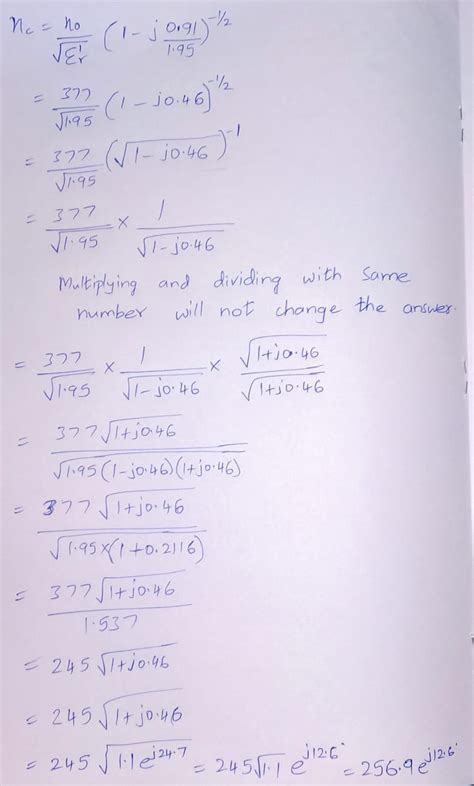 ηc = η0/√εr' (1 - j 0.91/1.95)^-1/2
= 377/√1.95 (1 - j0.46)^-1/2
= 377/√1.95 (√1 - j0.46)^-1
= 377/√1.95 × 1/√1-j0.46
Multiplying and dividing with same
number will not change the answer.
= 377/√1.95 × 1/√1-j0.46 × √1+j0.46/√1+j0.46
= 377√1+j0.46/√1.95(1-j0.46)(1+j0.46)
= 377√1+j0.46/√1.95×(1+0.2116)
= 377√1+j0.46/1.537
= 245√1+j0.46
= 245√1+j0.46
= 245√1.1e^j24.7 = 245√1.1 e^j12.6° = 256.9e^j12.6°